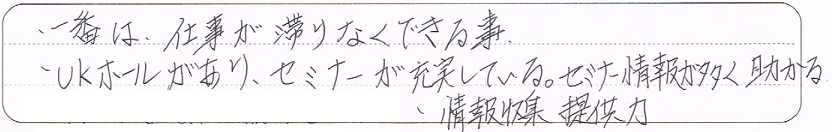 ・一番は、仕事が滞りなくできる事。
・UKホールがあり、セミナーが充実している。セミナー情報が多く助かる
・情報収集 提供力